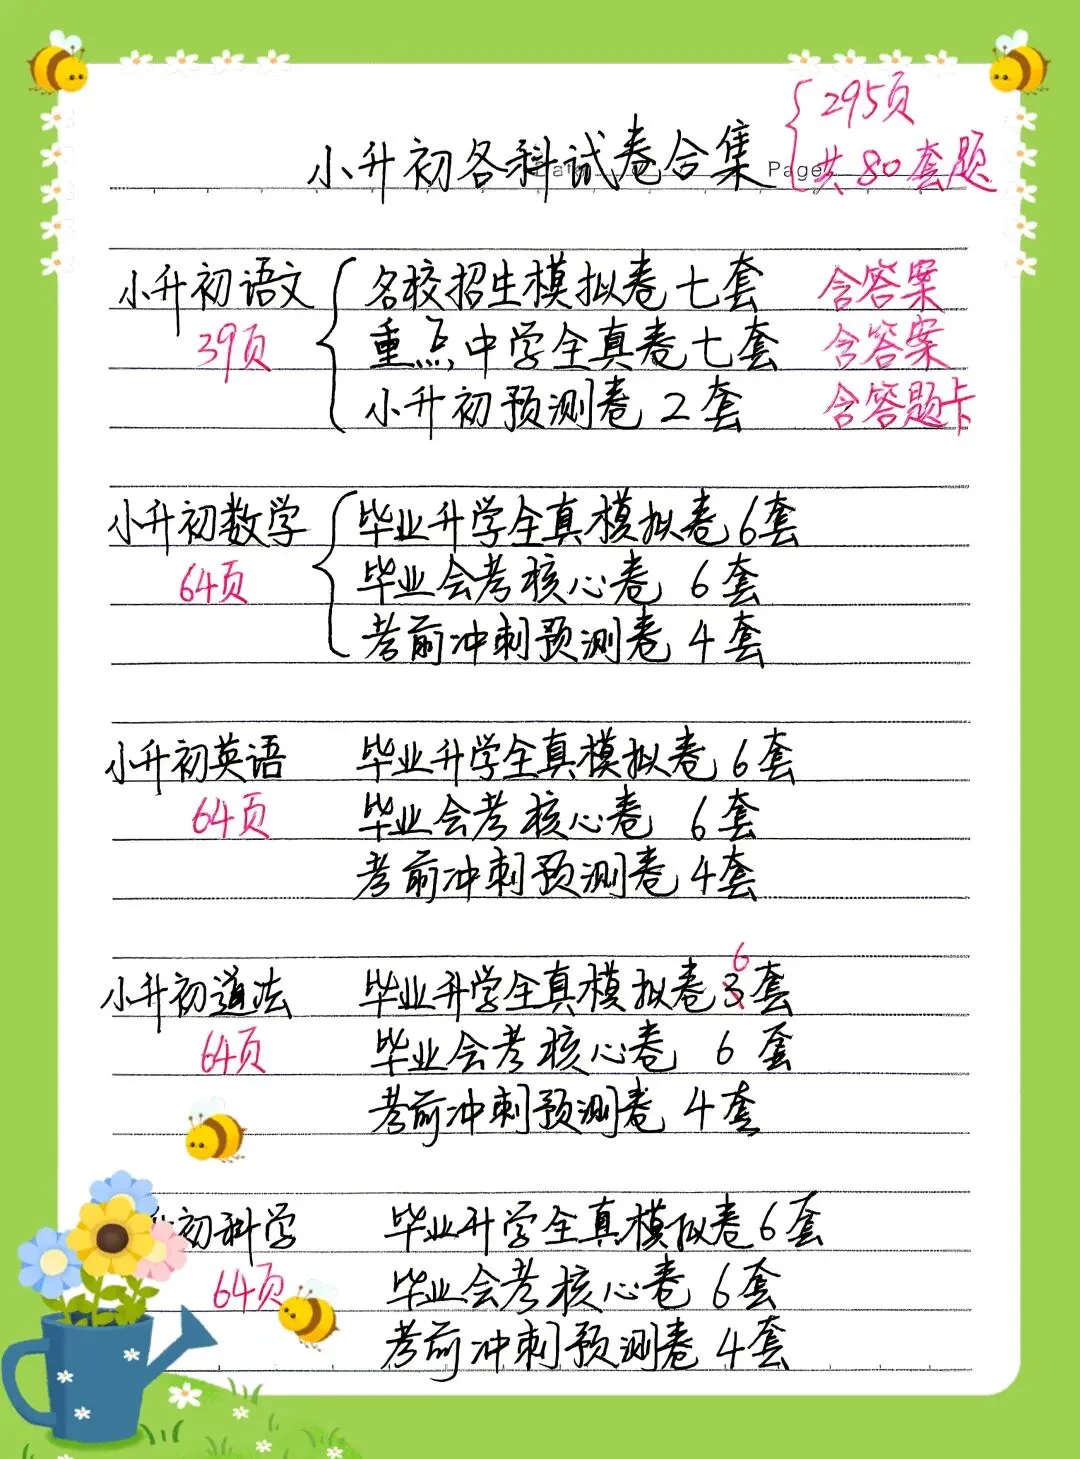 295页
小升初各科试卷合集 Page 共80套题
小升初语文 名校招生模拟卷七套 含答案
39页 重点中学全真卷七套 含答案
小升初预测卷2套 含答题卡
小升初数学 毕业升学全真模拟卷6套
64页 毕业会考核心卷 6套
考前冲刺预测卷4套
小升初英语 毕业升学全真模拟卷6套
64页 毕业会考核心卷 6套
考前冲刺预测卷4套
6
小升初道法 毕业升学全真模拟卷3套
64页 毕业会考核心卷 6套
考前冲刺预测卷 4套
初科学 毕业升学全真模拟卷6套
64页 毕业会考核心卷 6套
考前冲刺预测卷 4套